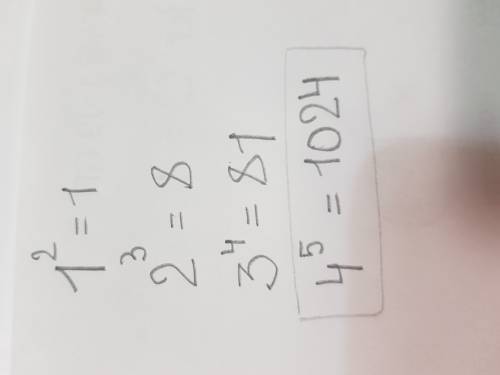 1² = 1
2³ = 8
3⁴ = 81
4⁵ = 1024